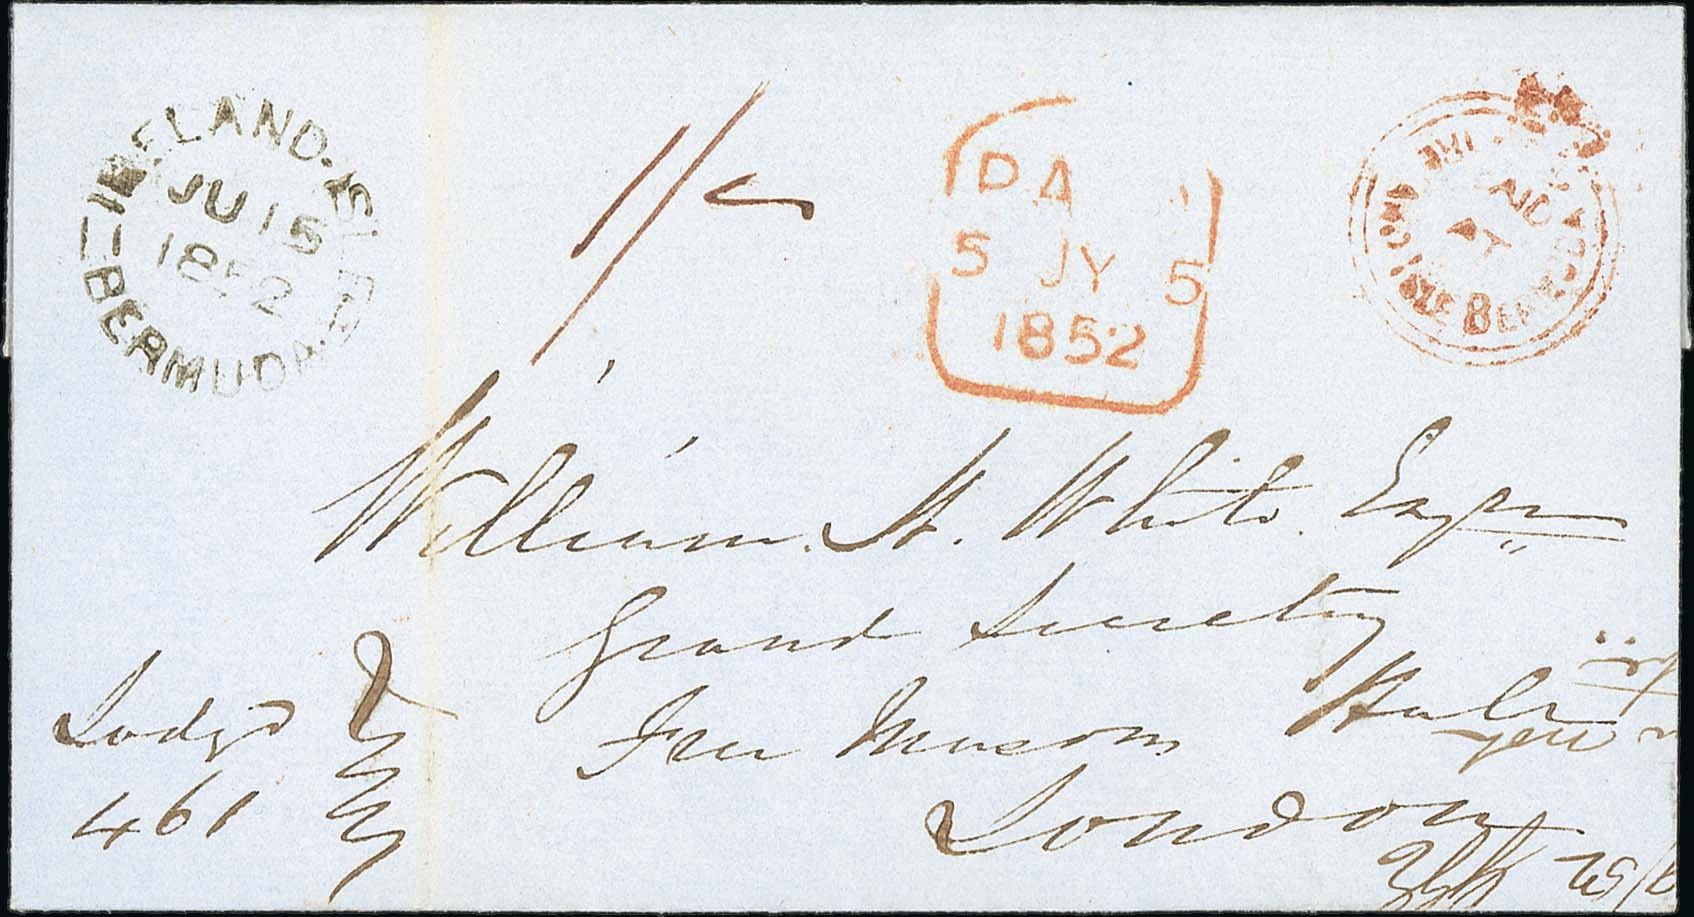 IRELAND·ISLE
JU 15
1852
BERMUDA·
1/-
PA
5 JY 5
1852
PAID
AT
IRELAND ISLE BERMUDA
William H. White Esqre
Grand Secretary
Free Masons Hall
London
Lodge
461